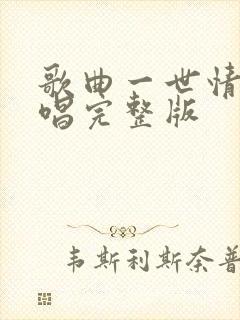 歌曲一世情
唱完整版
韦斯利斯奈普